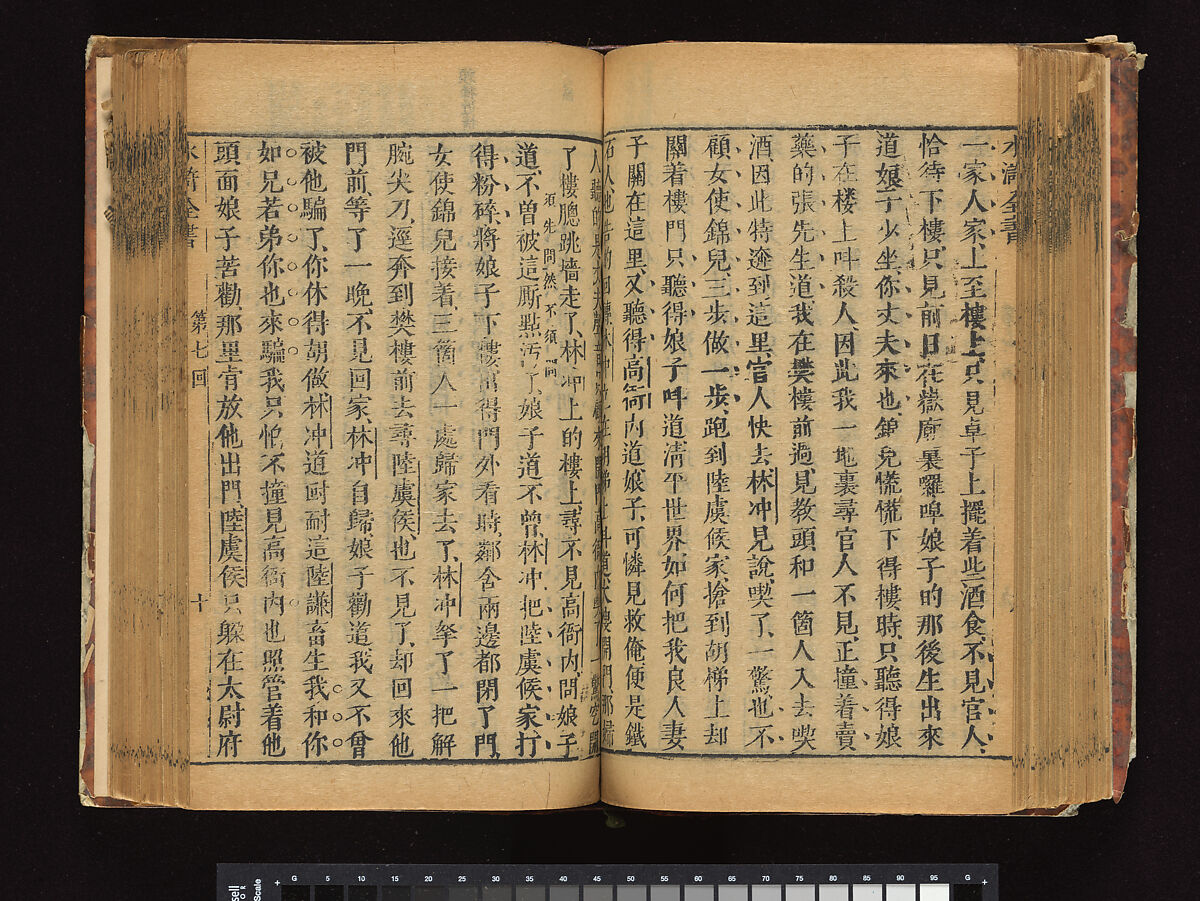 水滸全書
一家人家上至樓上只見卓子上擺着些酒食不見官人
恰待下樓只見前日在嶽廟裏囉唣娘子的那後生出來
道娘子少坐你丈夫來也錦兒慌慌下得樓時只聽得娘
子在楼上叫殺人因此我一地裏尋官人不見正撞着賣
藥的張先生道我在樊樓前過見教頭和一箇人入去喫
酒因此特迯到這里官人快去林冲見說喫了一驚也不
顧女使錦兒三步做一步跑到陸虞候家搶到胡梯上却
關着樓門只聽得娘子叫道清平世界如何把我良人妻
子關在這里又聽得高衙内道娘子可憐見救俺便是鐵
石人也告的回轉林冲立在胡梯上叫道大嫂開門那婦
人聽的是丈夫聲音只顧來開門高衙内喫了一驚斡開
了樓牕跳墻走了林冲上的樓上尋不見高衙内問娘子
道不曾被這厮點污了娘子道不曾林冲把陸虞候家打
須先問然不須問
得粉碎將娘子下樓出得門外看時鄰舍兩邊都閉了門
女使錦兒接着三箇人一處歸家去了林冲拏了一把解
腕尖刀逕奔到樊樓前去尋陸虞候也不見了却回來他
門前等了一晚不見回家林冲自歸娘子勸道我又不曾
被他騙了你休得胡做林冲道叵耐這陸謙畜生我和你
如兄若弟你也來騙我只怕不撞見高衙内也照管着他
頭面娘子苦勸那里肯放他出門陸虞候只躲在太尉府
水滸全書
第七回
十
G 5 10 15 20 25 30 35 40 45 50 55 60 65 70 75 80 85 90 95 G